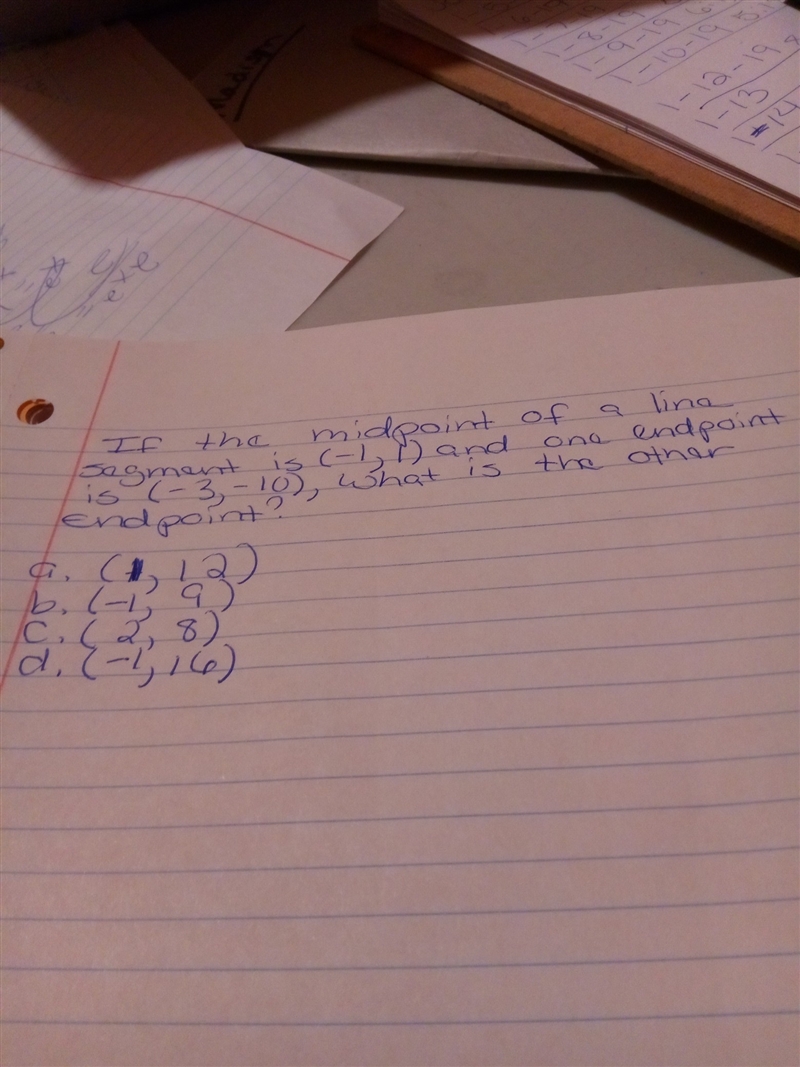 1-8-19
1-9-19
1-10-19
1-12-19
1-13
14
If the midpoint of a line
segment is (-1, 1) and one endpoint
is (-3, -10), what is the other
endpoint?
a. (1, 12)
b. (-1, 9)
c. (2, 8)
d. (-1, 16)